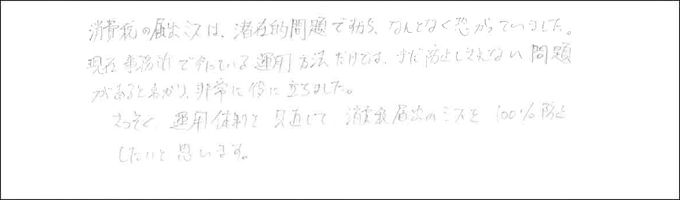 消費税の届出ミスは、潜在的問題ですから、なんとなく恐がっていました。
現在事務所で行っている運用方法だけでは、まだ防止しきれない問題
があるとわかり、非常に役に立ちました。
さっそく、運用体制を見直して、消費税届出のミスを100%防止
したいと思います。